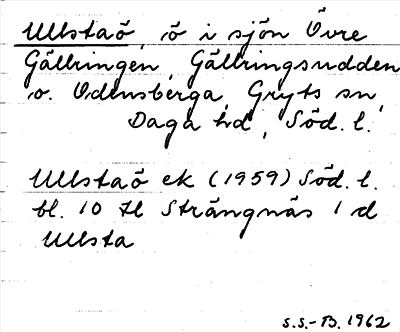 Ullstaö, ö i sjön Övre
Gällringen, Gällringsudden
o. Ödensberga, Gryts sn,
Daga hd, Söd. l.
Ullstaö ek (1959) Söd. l.
bl. 10 H Strängnäs 1 d
Ullsta
S.S.-B. 1962